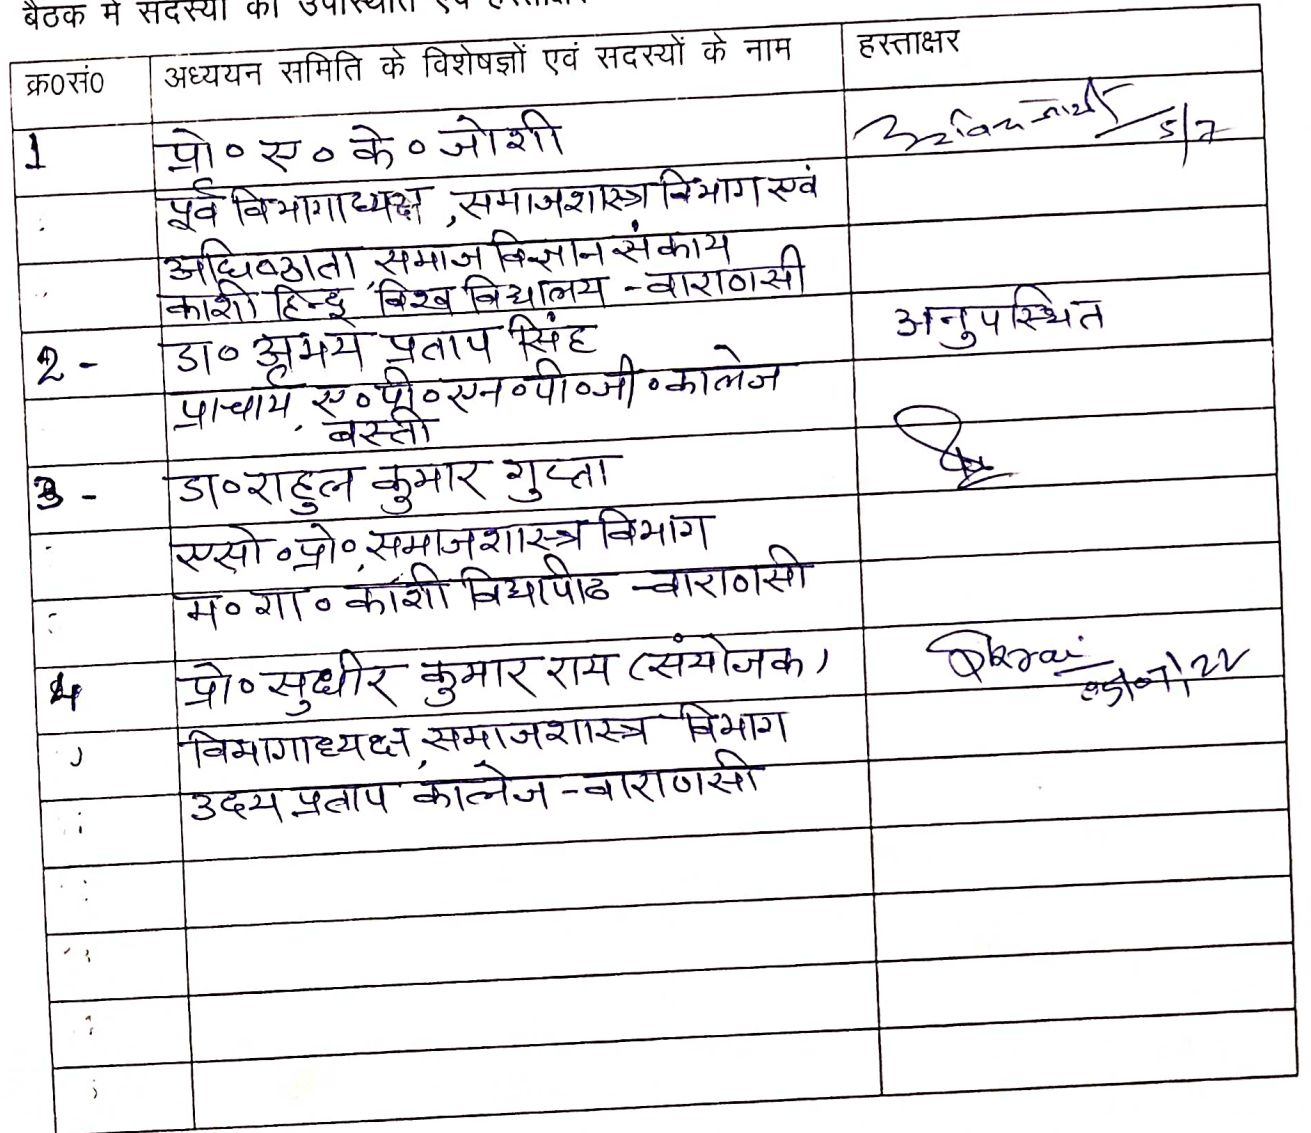 बैठक में सदस्यों की उपस्थिति एवं हस्ताक्षर
क्र0सं0 अध्ययन समिति के विशेषज्ञों एवं सदस्यों के नाम हस्ताक्षर
1 प्रो० ए० के० जोशी 5/7
पूर्व विभागाध्यक्ष, समाजशास्त्र विभाग एवं
अधिष्ठाता, समाज विज्ञान संकाय
काशी हिन्दू विश्व विद्यालय - वाराणसी
2 - डा० अभय प्रताप सिंह अनुपस्थित
प्राचार्य, ए०पी०एन०पी०जी०कालेज
बस्ती
3 - डा० राहुल कुमार गुप्ता
एसो०प्रो०, समाजशास्त्र विभाग
म० गा० काशी विद्यापीठ - वाराणसी
4 प्रो० सुधीर कुमार राय (संयोजक) Skrai
विभागाध्यक्ष, समाजशास्त्र विभाग
उदय प्रताप कालेज - वाराणसी